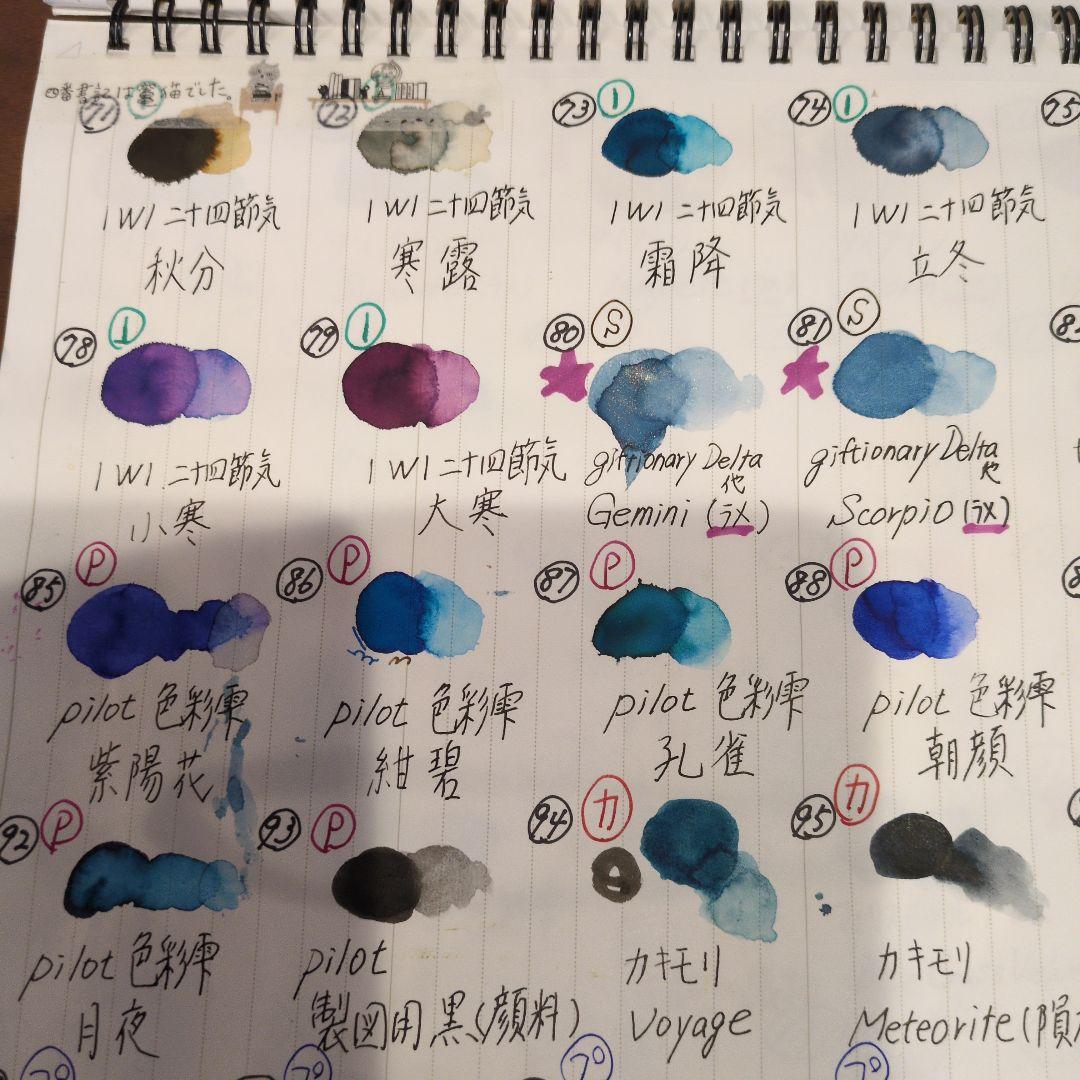 四番書記は猫でした。
71 72 73 1 74 1 75
1W1 二十四節気 1W1 二十四節気 1W1 二十四節気 1W1 二十四節気
秋分 寒露 霜降 立冬
78 1 79 1 80 S 81 S
1W1 二十四節気 1W1 二十四節気 giftionary Delta 他 giftionary Delta 他
小寒 大寒 Gemini (ラメ) Scorpio (ラメ)
85 P 86 P 87 P 88 P
pilot 色彩雫 pilot 色彩雫 pilot 色彩雫 pilot 色彩雫
紫陽花 紺碧 孔雀 朝顔
92 P 93 P 94 カ 95 カ
pilot 色彩雫 pilot カキモリ カキモリ
月夜 製図用黒(顔料) Voyage Meteorite(隕
プ プ